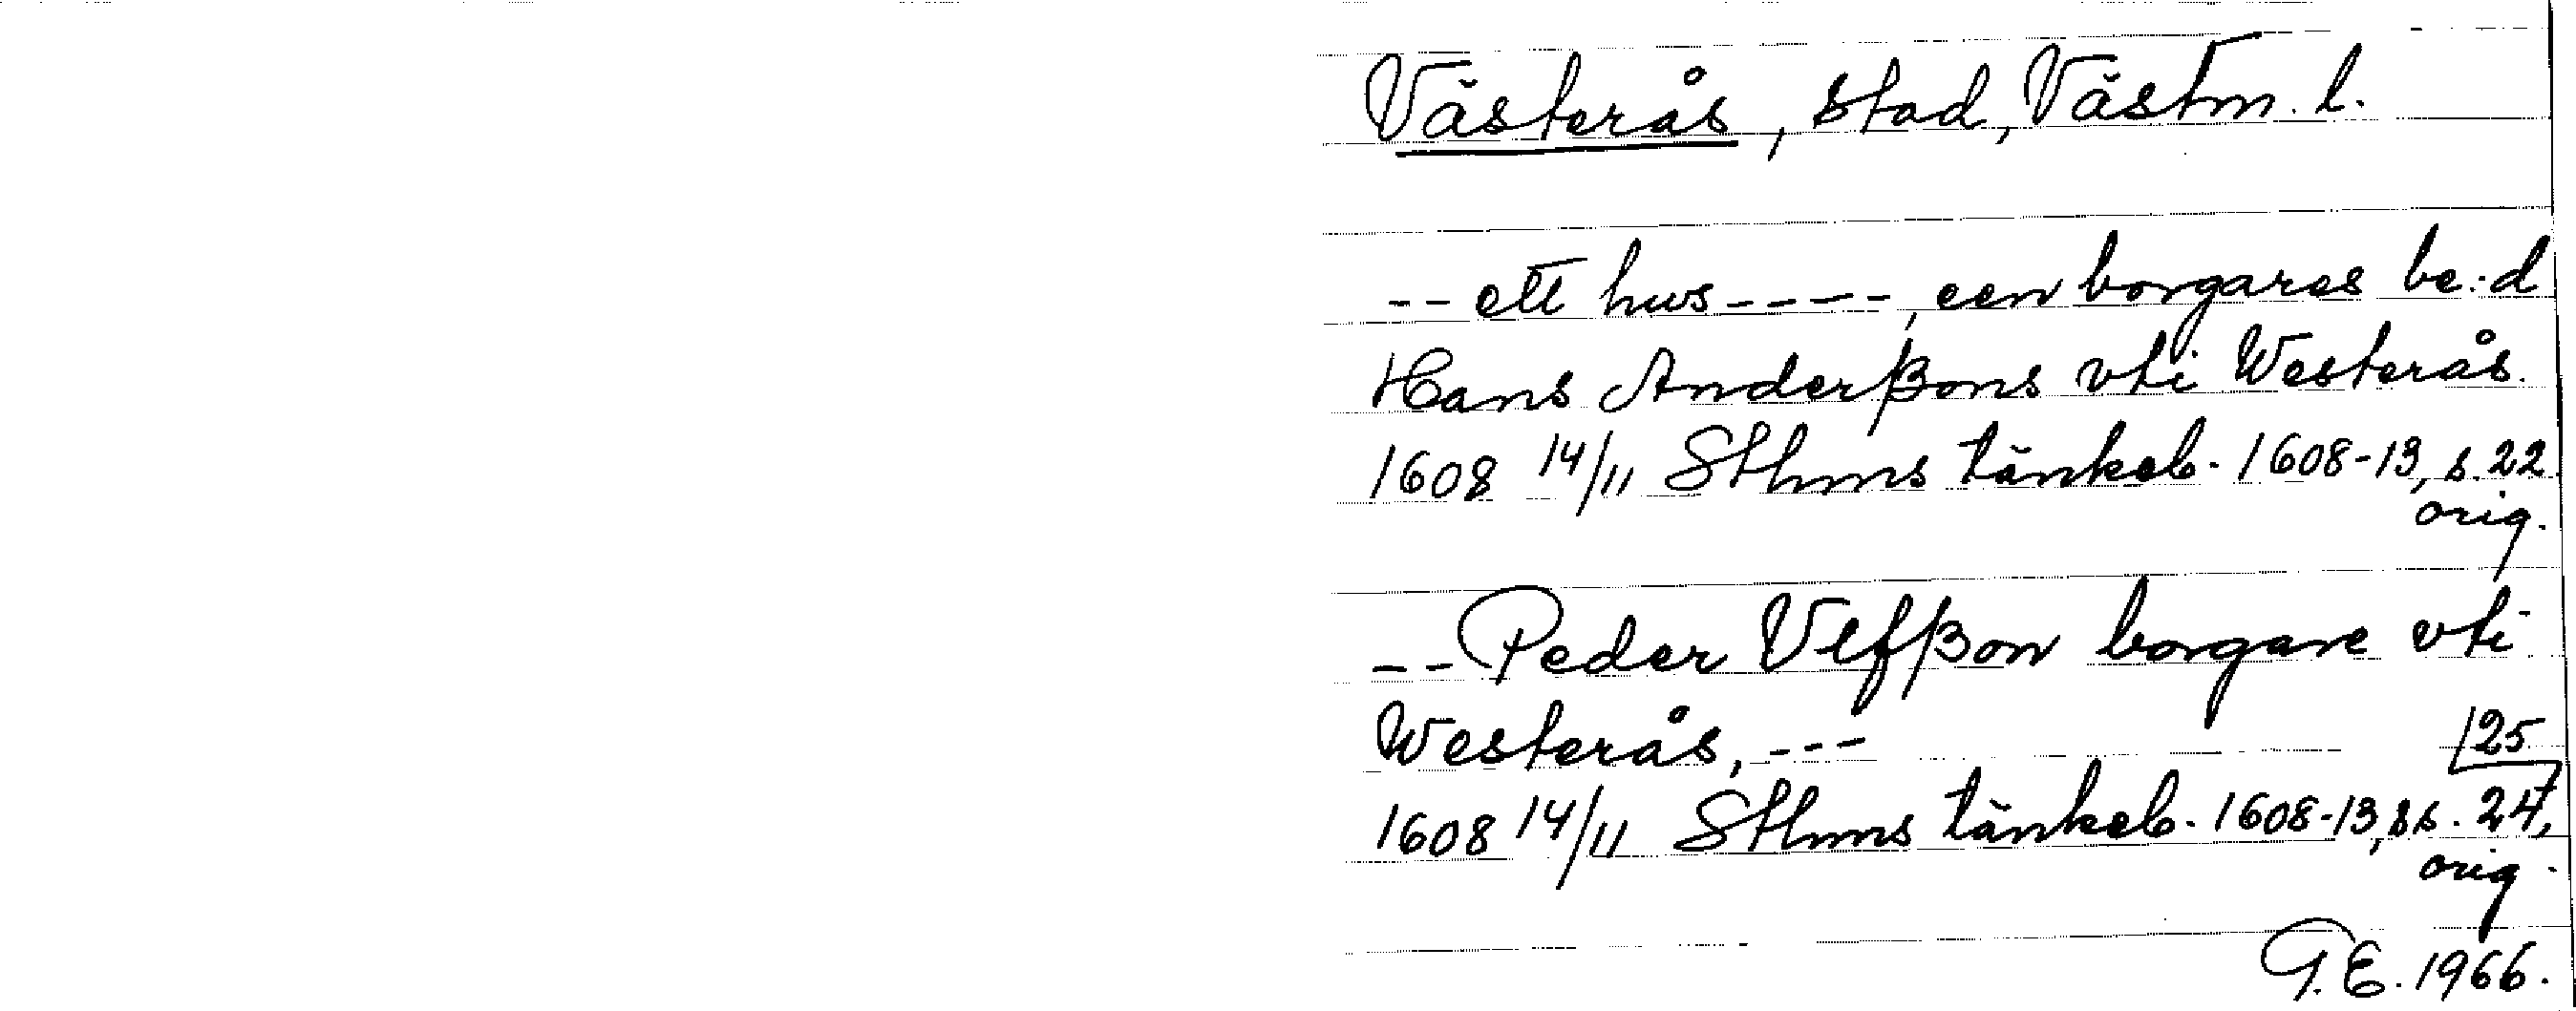 Västerås, stad, Västm. l.
-- ett hws ----, een borgares be:d
Hans Anderßons vti Westerås.
1608 14/11 Sthms tänkeb. 1608-13, s. 22
orig.
-- Peder Vlfßon borgare vti
Westerås, ---
25
1608 14/11 Sthms tänkeb. 1608-13, ss. 24,
orig.
G.E. 1966.